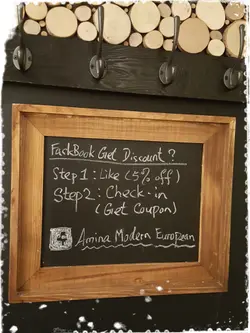 FaskBook Get Discount ?
Step 1 : Like (5% off)
Step 2 : Check-in
(Get Coupon)
Amina Modern European